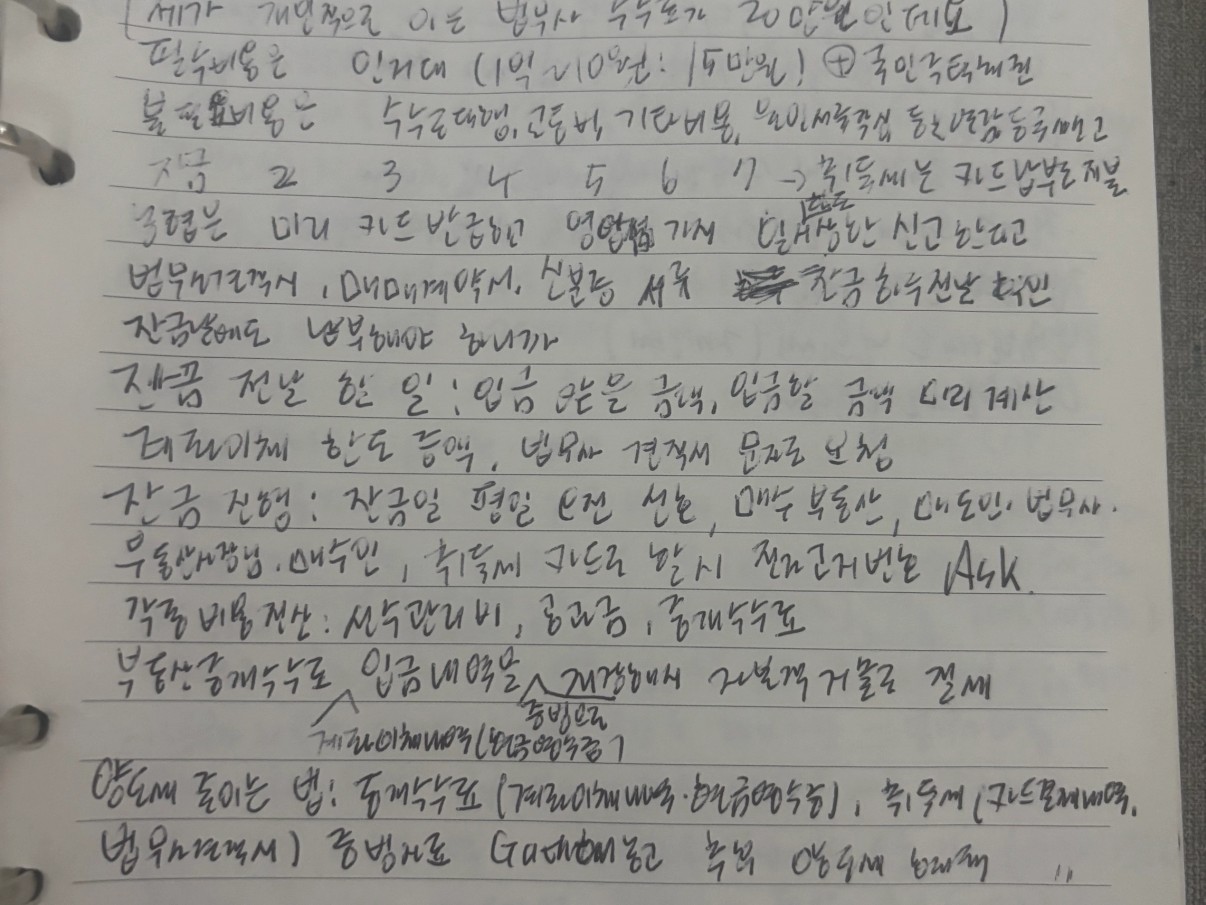 (제가 개인적으로 아는 법무사 수수료가 20만원인데요)
필수비용은 인지대 (1억~10억원: 15만원) ⊕ 국민주택채권
불필요비용은 수수료대행, 교통비, 기타비용, 등 빼고
지금 2 3 4 5 6 7 → 취득세는 카드납부로 지불
미리 카드 발급하고 가서 신고한다고
법무사견적서, 매매계약서, 신분증 서류 잔금 하루전날 확인
잔금날에도 납부해야 하니까
잔금 전날 할 일: 입금 받을 금액, 입금할 금액 미리 계산
계좌이체 한도 증액, 법무사 견적서 문자로 요청
잔금 진행: 잔금일 평일 오전 선호, 매수 부동산, 매도인, 법무사.
부동산사장님, 매수인, 취득세 카드로 할 시 전자고지번호 Ask.
각종 비용 정산: 선수관리비, 공과금, 중개수수료
부동산중개수수료 입금내역을 저장해서 절세
증빙으로
계좌이체내역 (현금영수증)
양도세 줄이는 법: 중개수수료 (계좌이체내역·현금영수증), 취득세 (카드결제내역,
법무사견적서) 증빙자료 해놓고 추후 양도세 "